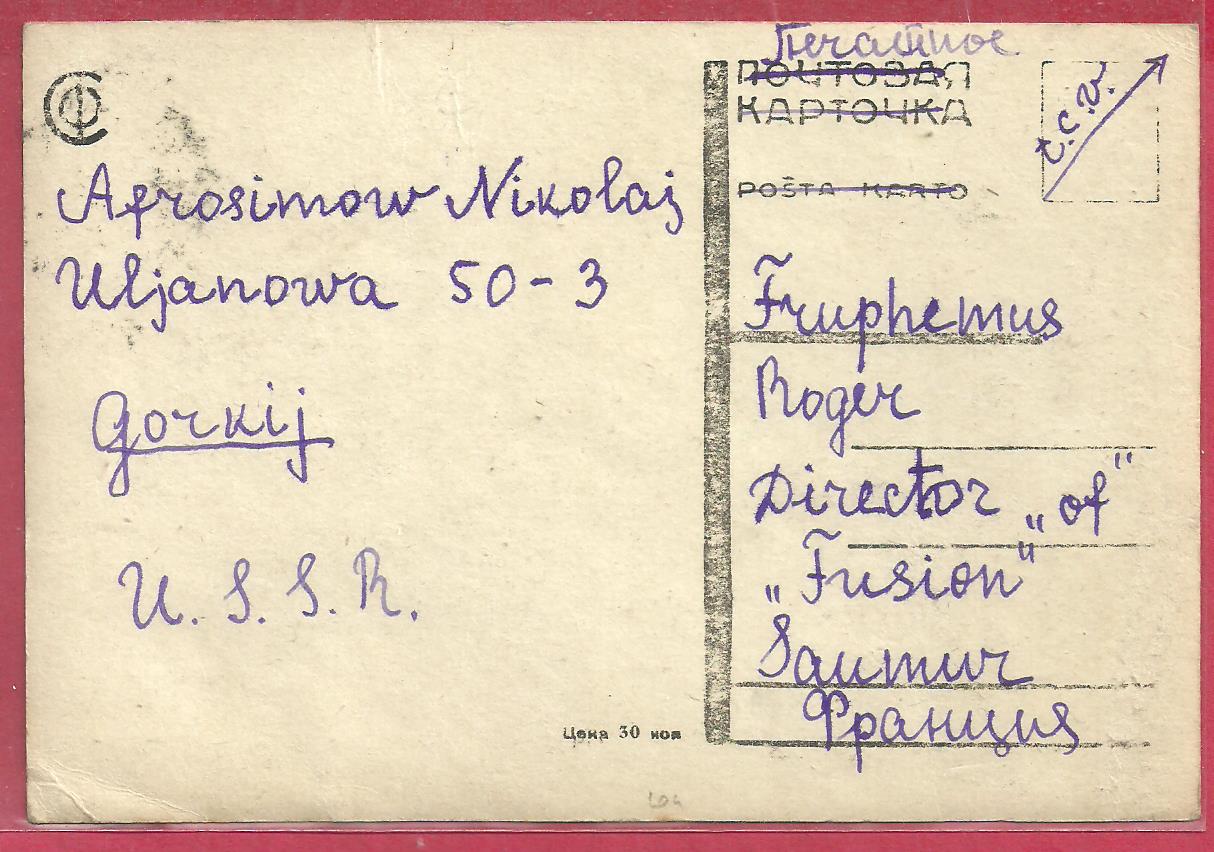 Afrosimow Nikolaj
Uljanowa 50-3
Gorkij
U. S. S. R.
Цена 30 коп
Печатное
ПОЧТОВАЯ
КАРТОЧКА
POŠTA KARTO
t.c.v.
Fruphemus
Roger
Director „of"
„Fusion"
Saumur
Франция